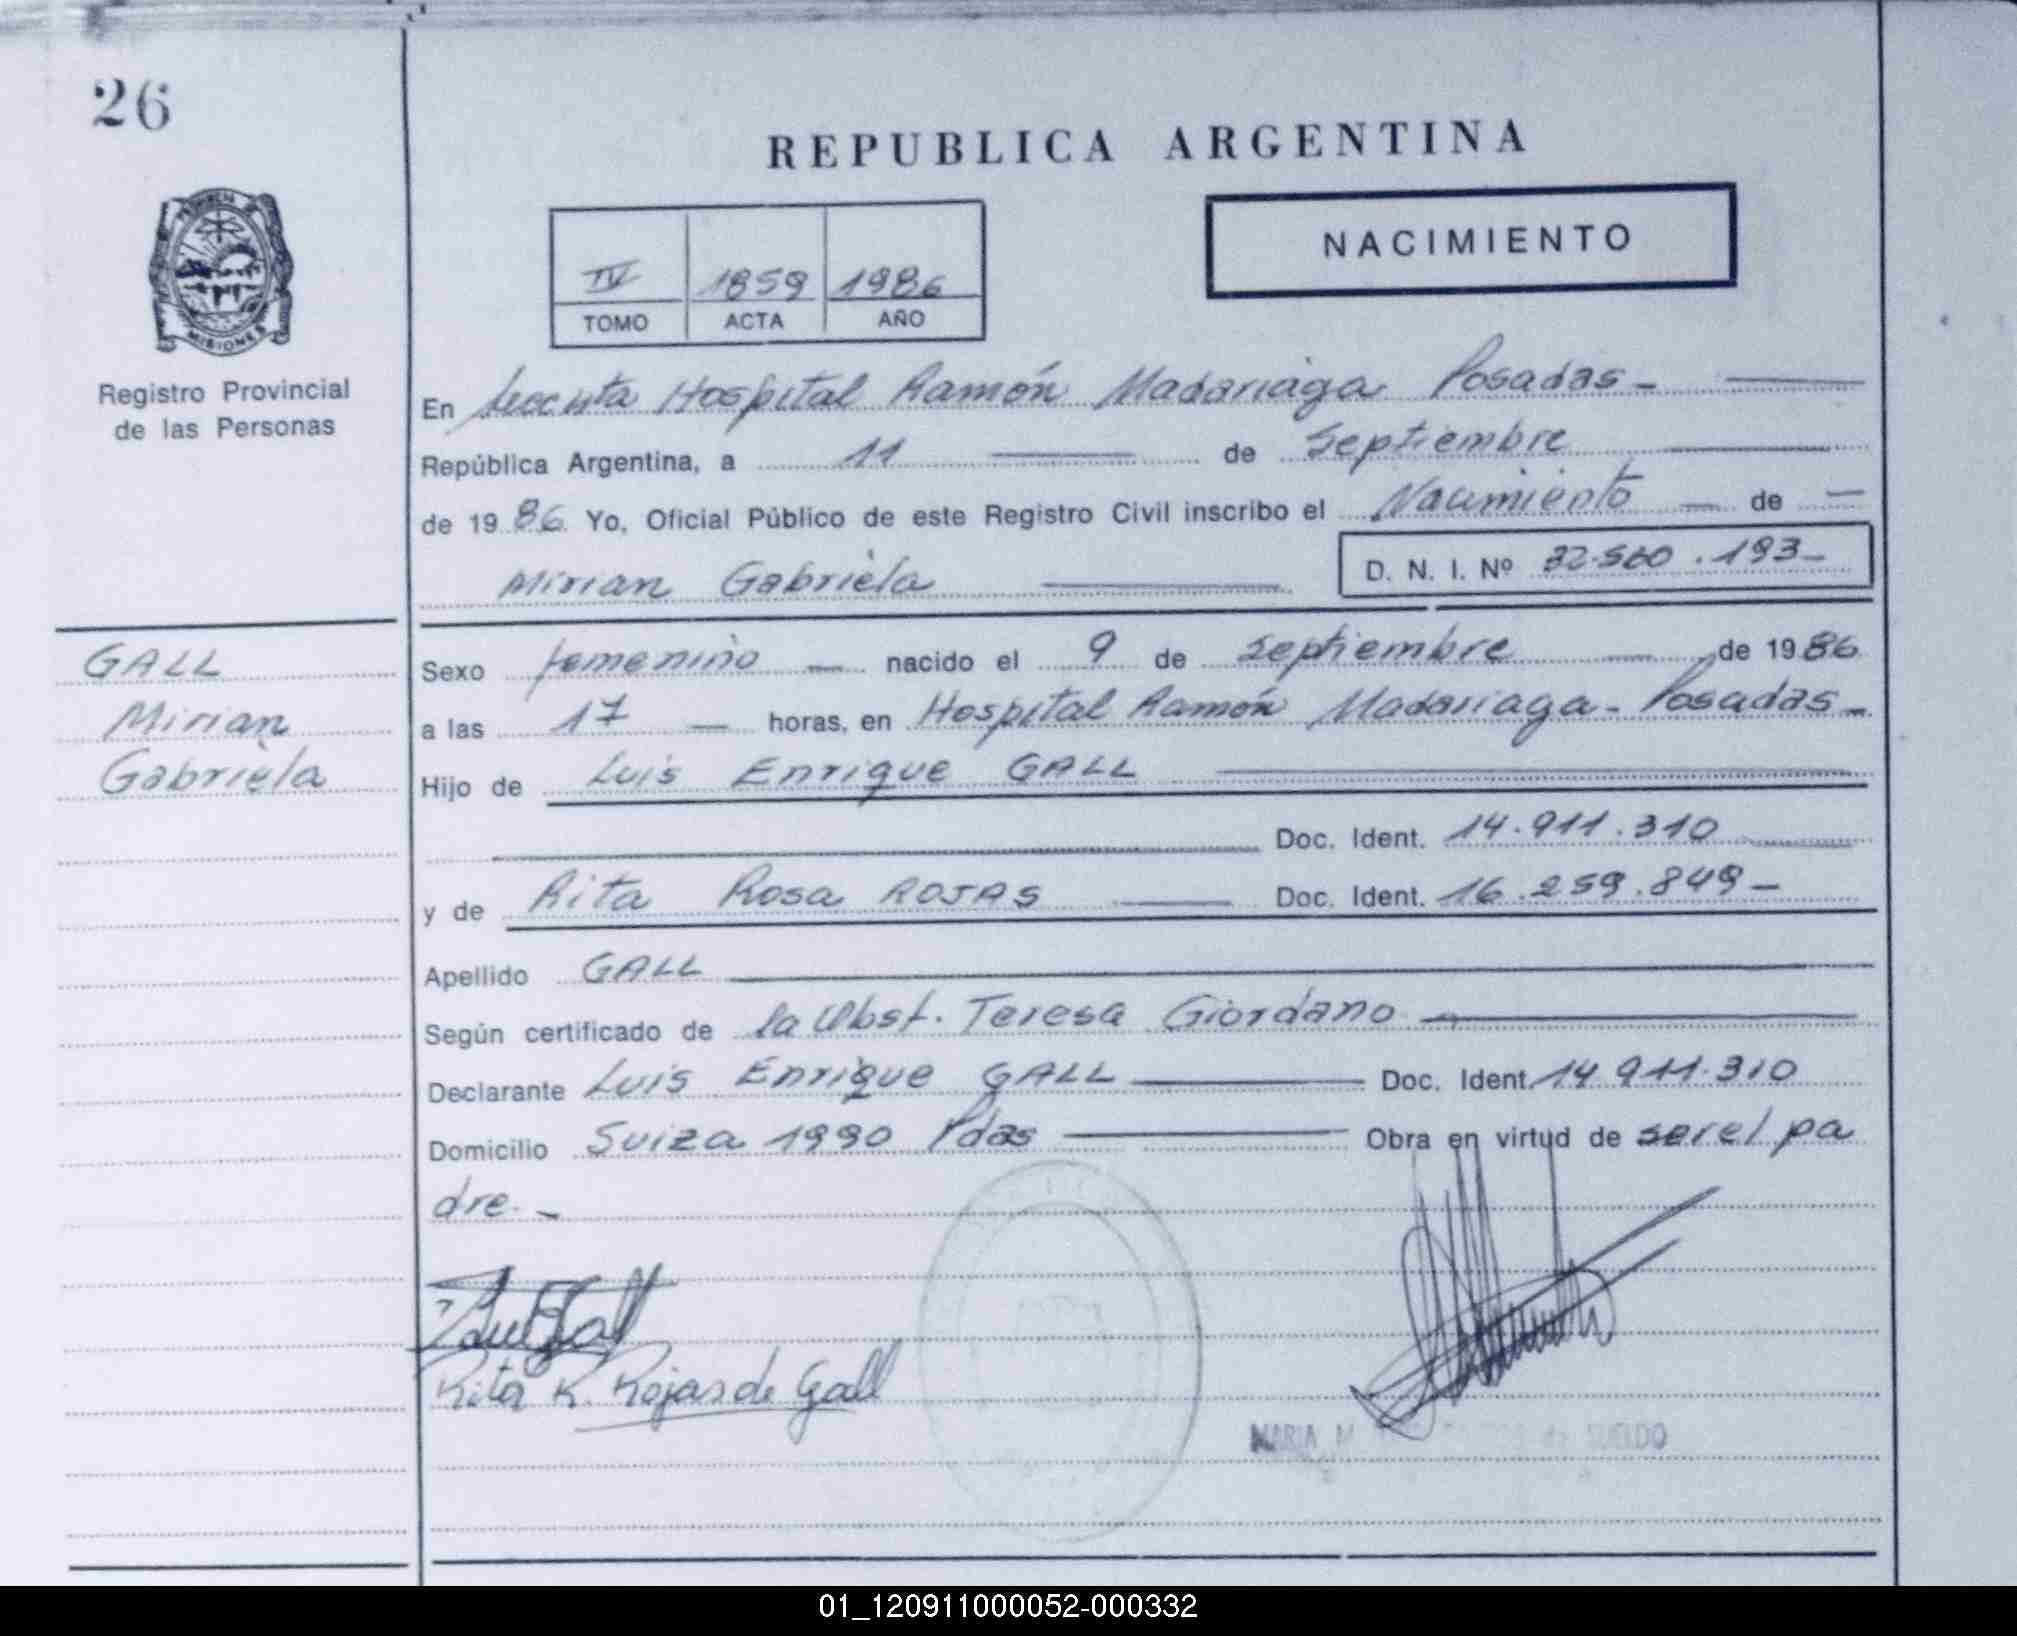 26
REPUBLICA ARGENTINA
NACIMIENTO
IV 1859 1986
TOMO ACTA AÑO
PROVINCIA DE
MISIONES
Registro Provincial
de las Personas
En Hospital Ramón Madariaga Posadas -
República Argentina, a 11 de Septiembre
de 1986 Yo, Oficial Público de este Registro Civil inscribo el Nacimiento de
Mirian Gabriela D. N. I. Nº 32.560.193-
GALL
Mirian
Gabriela
Sexo femenino nacido el 9 de septiembre de 1986
a las 17 horas, en Hospital Ramón Madariaga - Posadas -
Hijo de Luis Enrique GALL
Doc. Ident. 14.911.310
y de Rita Rosa ROJAS Doc. Ident. 16.259.849-
Apellido GALL
Según certificado de la Obst. Teresa Giordano
Declarante Luis Enrique GALL Doc. Ident. 14.911.310
Domicilio Suiza 1990 Pdas Obra en virtud de ser el pa
dre. -
Rita R. Rojas de Gall
MARIA M. de SUELDO
01_120911000052-000332